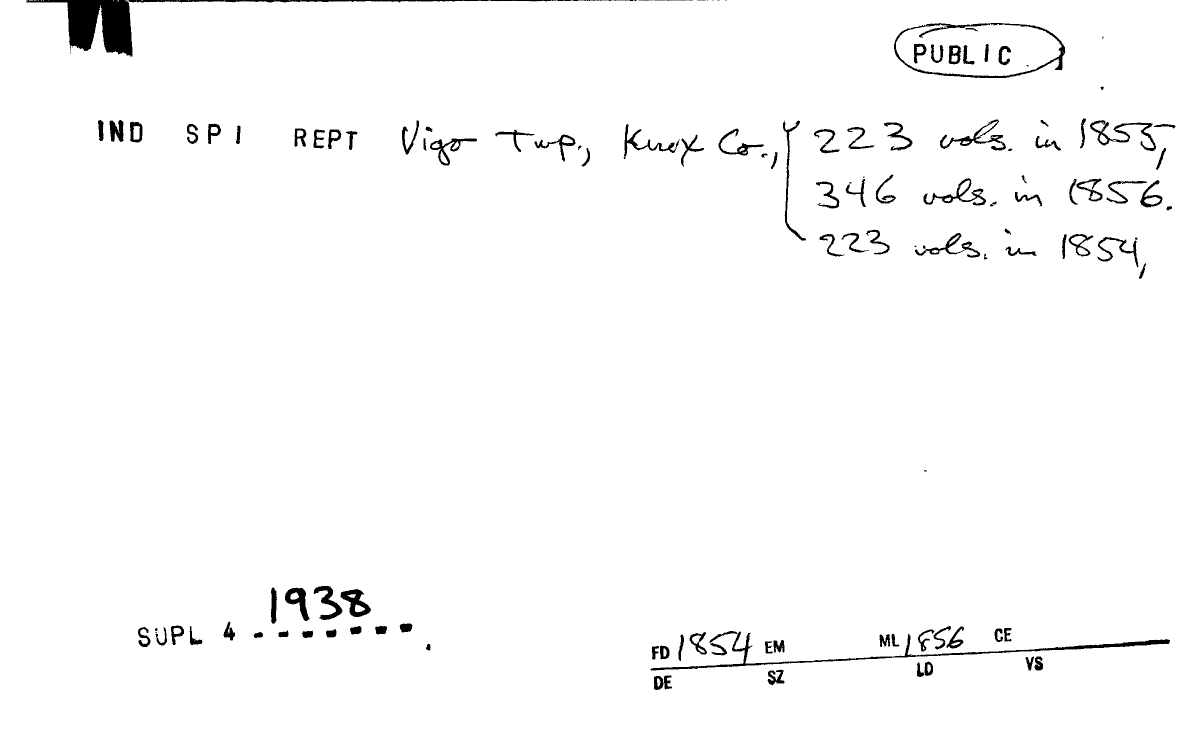 PUBLIC
IND SPI REPT Vigo Twp., Knox Co., 223 vols. in 1855,
346 vols. in 1856.
223 vols. in 1854,
1938
SUPL 4 - - - - - - - .
FD 1854 EM ML 1856 CE
DE SZ LD VS